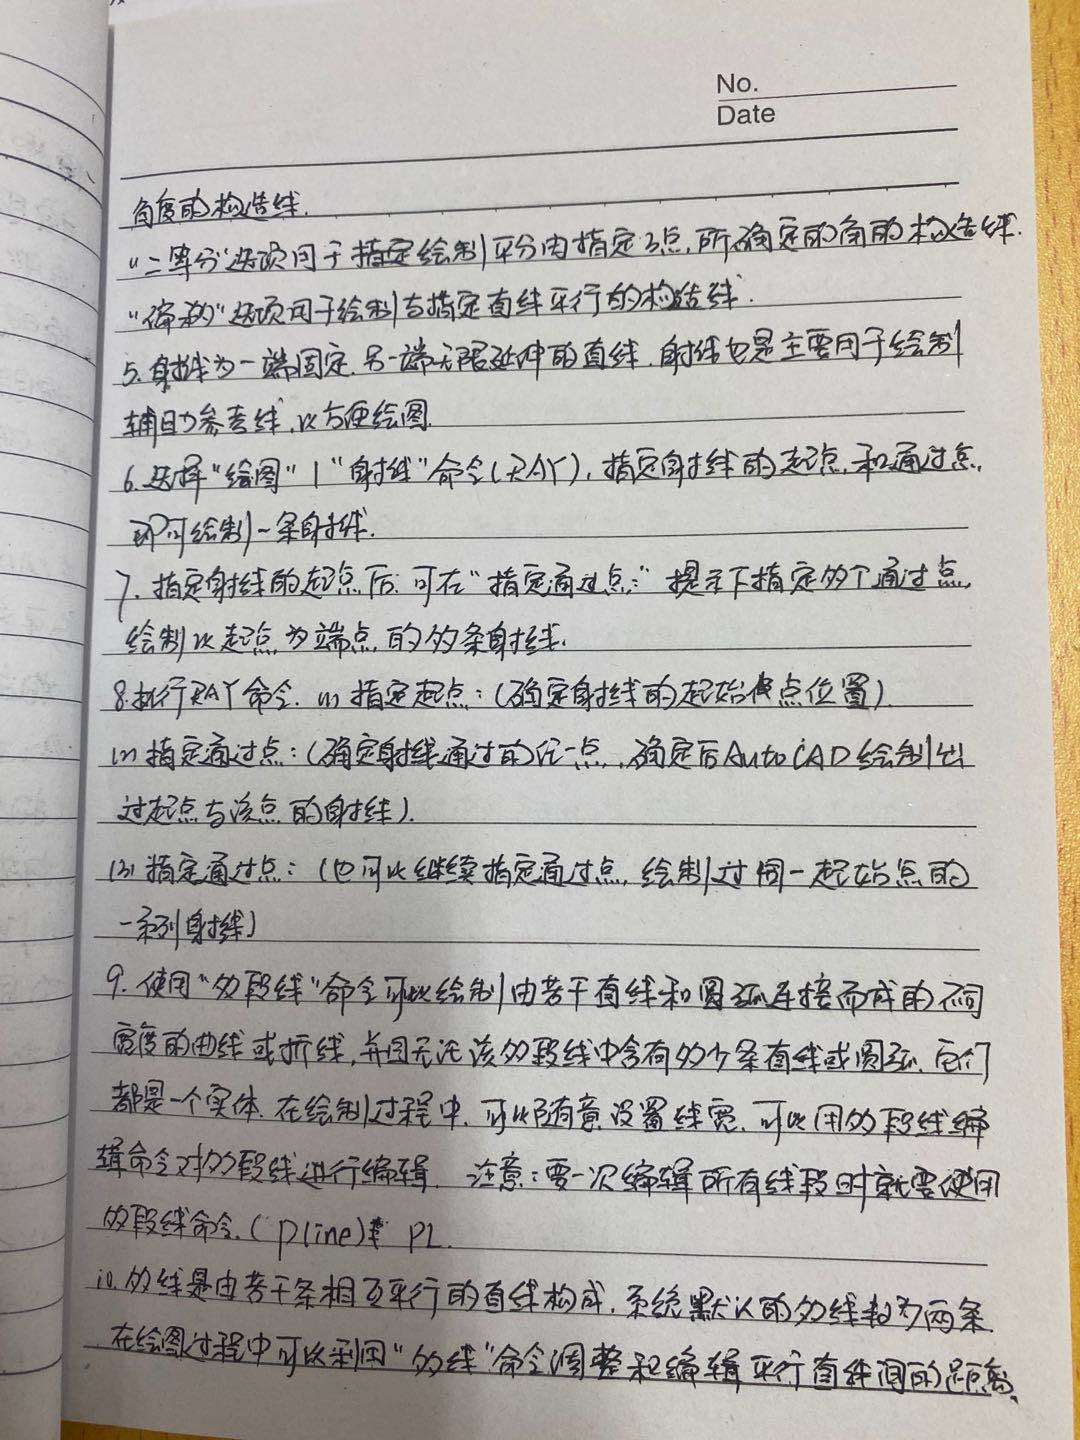 No.
Date
角度的构造线.
“二等分”选项用于指定绘制平分由指定3点,所确定的角的构造线.
“偏移”选项用于绘制与指定直线平行的构造线.
5.射线为一端固定.另一端无限延伸的直线.射线也是主要用于绘制
辅助参考线,以方便绘图.
6.选择“绘图”|“射线”命令(RAY),指定射线的起点,和通过点,
即可绘制一条射线.
7.指定射线的起点后.可在“指定通过点:”提示下指定多个通过点,
绘制以起点为端点的多条射线.
8.执行RAY命令.(1)指定起点:(确定射线的起始点位置).
(2)指定通过点:(确定射线通过的任一点,确定后AutoCAD绘制出
过起点与该点的射线).
(3)指定通过点:(也可以继续指定通过点,绘制过同一起始点的
一系列射线)
9.使用“多段线”命令可以绘制由若干直线和圆弧连接而成的不同
宽度的曲线或折线,并且无论该多段线中含有多少条直线或圆弧.它们
都是一个实体.在绘制过程中,可以随意设置线宽,可以用多段线编
辑命令对多段线进行编辑. 注意:要一次编辑所有线段时就要使用
多段线命令.(pline) PL.
10.多线是由若干条相互平行的直线构成.系统默认的多线数为两条.
在绘图过程中可以利用“多线”命令调整和编辑平行直线间的距离、